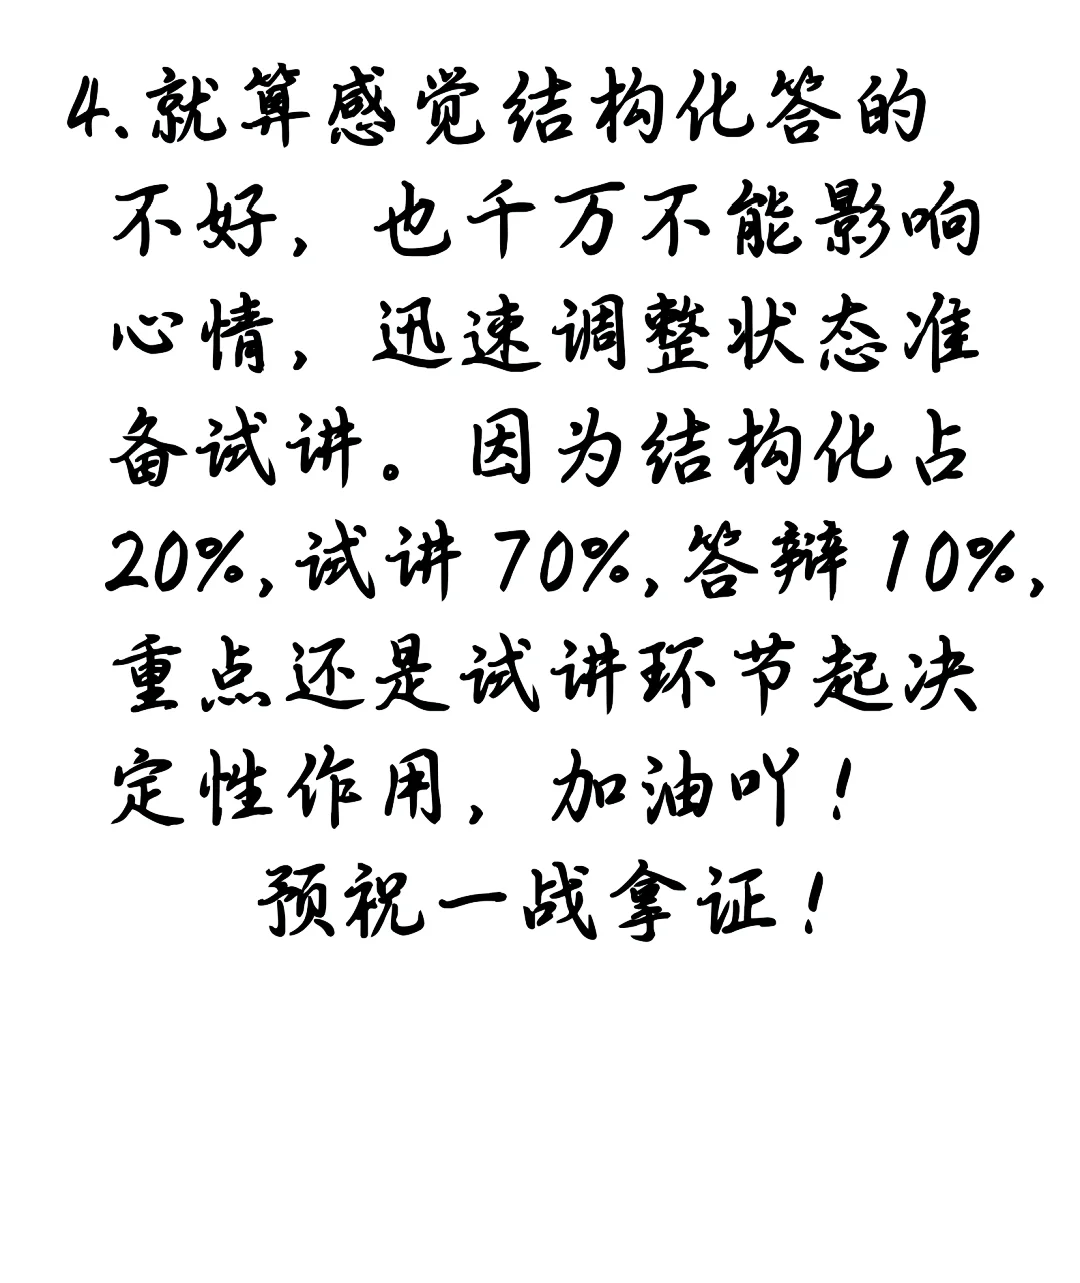 4.就算感觉结构化答的
不好，也千万不能影响
心情，迅速调整状态准
备试讲。因为结构化占
20%,试讲70%,答辩10%,
重点还是试讲环节起决
定性作用，加油吖！
预祝一战拿证！